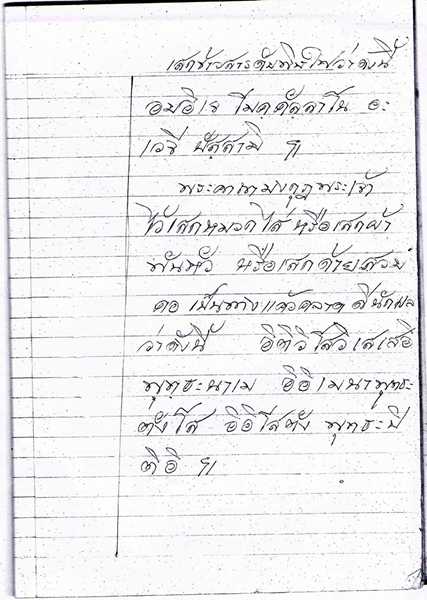 เสกข้าวสารดับพิษไฟว่าดังนี้
อมอิเร โมคคัลลาโน อะ
เวชี ปัสสามิ ฯ
พระคาถามงกุฎพระเจ้า
ไว้เสกหมวกใส่ หรือเสกผ้า
พันหัว หรือเสกด้ายสวม
คอ เป็นทางแคล้วคลาด ดีนักแล
ว่าดังนี้ อิติวิโสวิเสเสอิ
พุทธะนาเม อิอิเมนาพุทธะ
ตังโส อิอิโสตัง พุทธะปิ
ติอิ ฯ